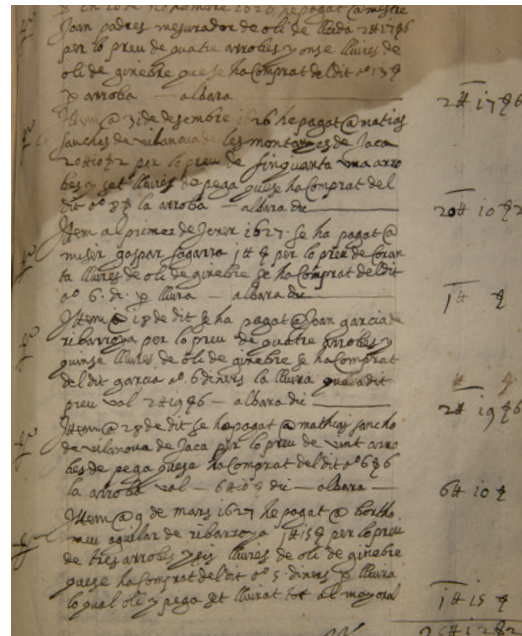 Joan padres mesurador de oli de lleida 2 ll 17 s 6
per lo preu de quatre arrobes y onse lliures de
oli de ginebre que se ha comprat del dit a 13 s
p arroba — albara — 2 ll 17 s 6
Ittem @ 31 de desembre 1626 he pagat @ matias
sanches de vilanova de les montanyes de Jaca
20 ll 10 s 2 per lo preu de sinquanta una arro
bes y set lliures de pega que se ha comprat del
dit a 8 s la arroba — albara die — 20 ll 10 s 2
Ittem al primer de Jener 1627 se ha pagat @
miser gaspar sagarra 1 ll s per lo preu de coran
ta lliures de oli de ginebre se ha comprat del dit
a 6 di. p lliura — albara die — 1 ll s
Ittem @ 18 de dit se ha pagat @ Joan garcia de
ribarroya por lo preu de quatre arrobes y
quinse lliures de oli de ginebre se ha comprat
del dit garcia a 6 diners la lliura que adit
preu val 2 ll 19 s 6 — albara die — 2 ll 19 s 6
Ittem @ 28 de dit se he pagat @ mathias sancho
de vilanova de Jaca per lo preu de vint arro
bes de pega que se ha comprat del dit a 6 s 6
la arroba val — 6 ll 10 s die — albara — 6 ll 10 s
Ittem @ 9 de mars 1627 he pagat @ bertho
meu aguilar de ribarroya 1 ll 15 s per lo preu
de tres arrobes y sis lliures de oli de ginebre
que se ha comprat del dit a 5 diners p lliura
lo qual oli y pega set lliurat tot al mayoral 1 ll 15 s